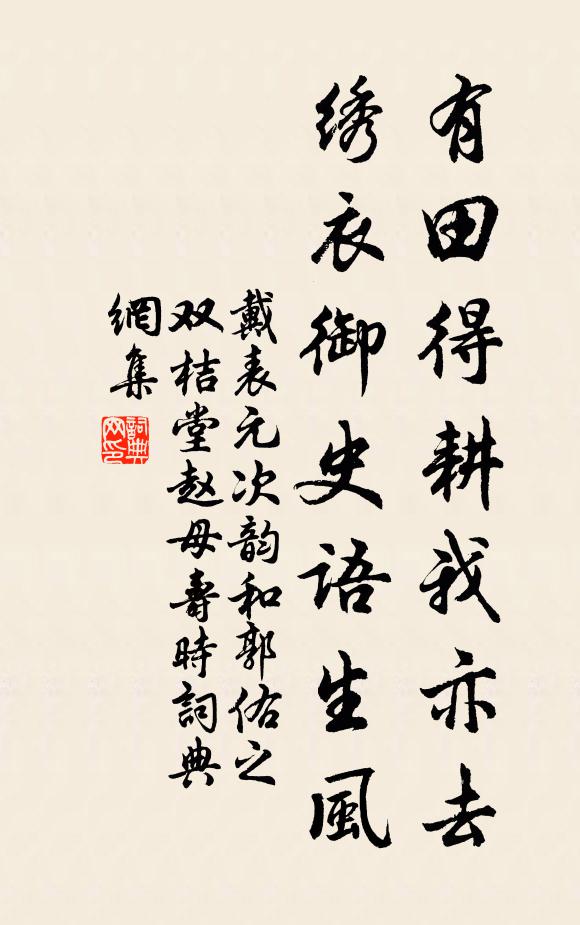 有田得耕我亦去
绣衣御史语生風
戴表元次韵和郭佑之
双桔堂赵母壽時詞典
網集
詞典
网印